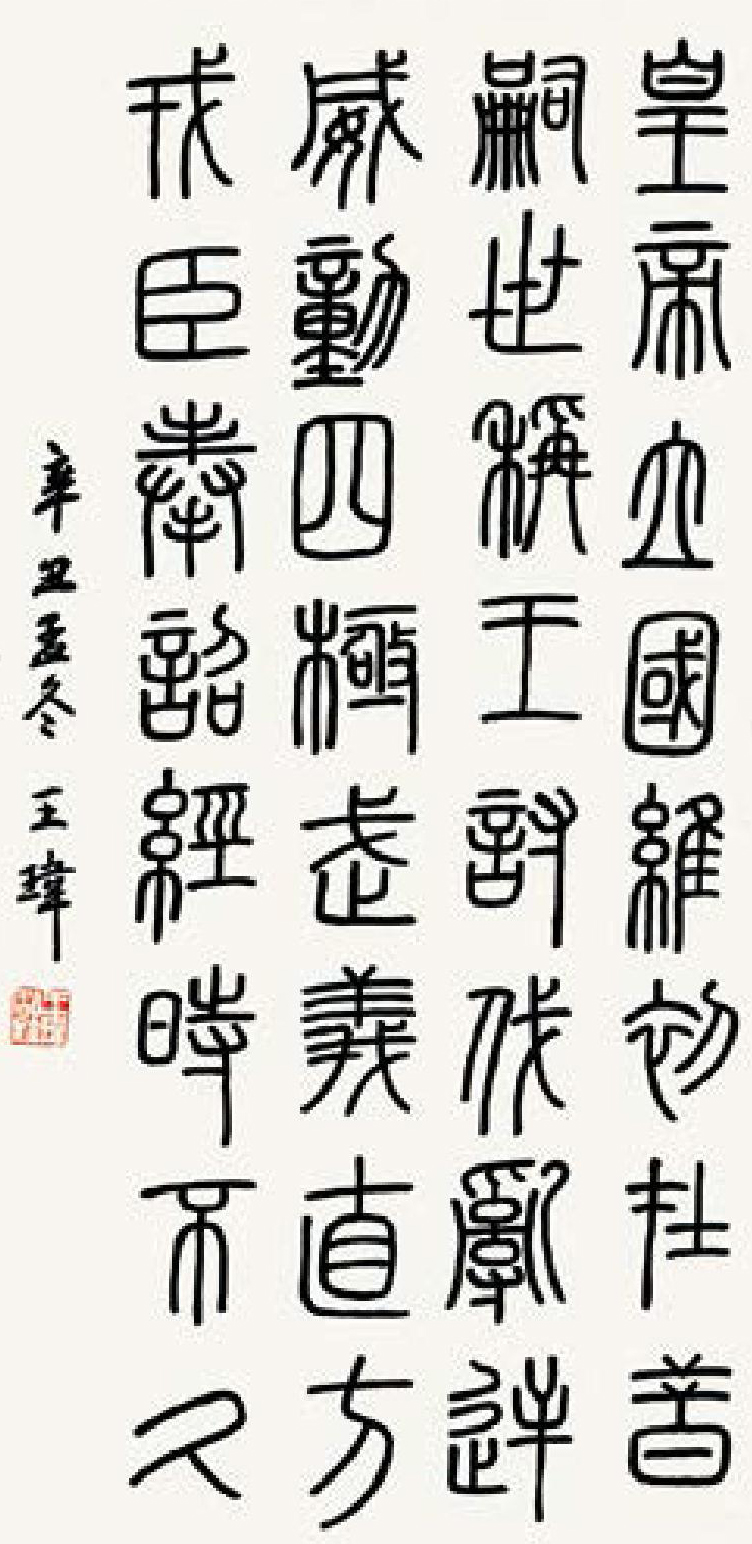 皇帝立國維初在昔
嗣世稱王討伐亂逆
威動四極武義直方
戎臣奉詔經時不久
辛丑孟冬 王瑋